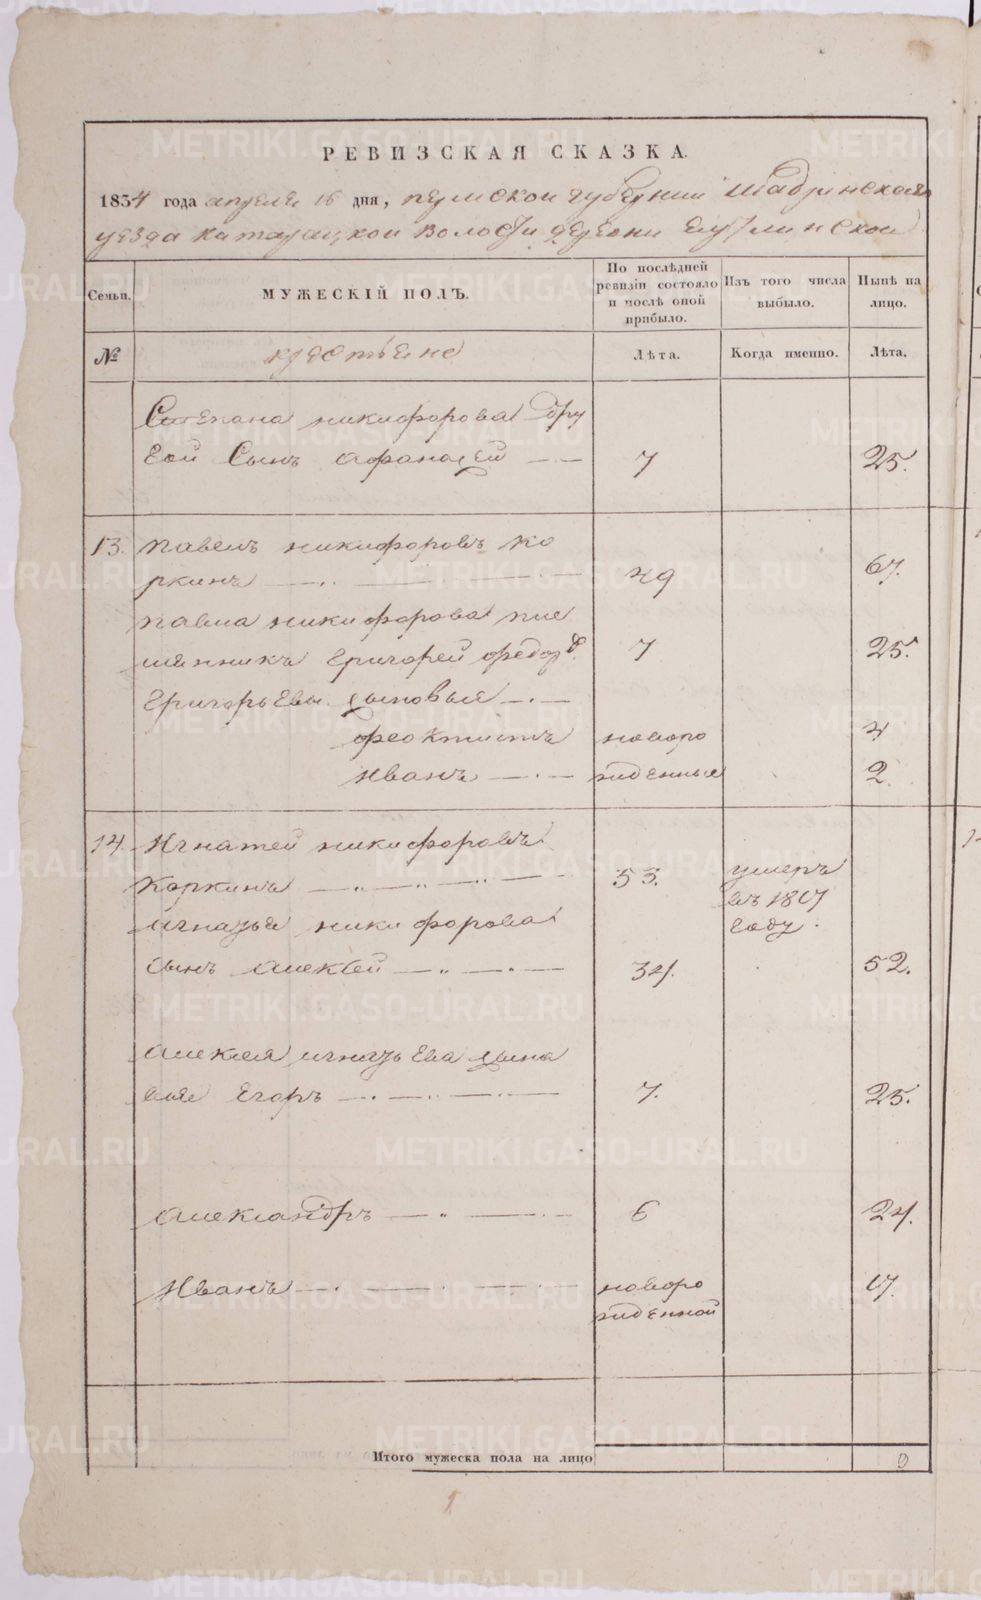 РЕВИЗСКАЯ СКАЗКА.
1834 года апреля 16 дня, пермской губернии Шадринскаго
уезда катайской волости деревни
Семьи. МУЖЕСКІЙ ПОЛЪ. По послѣдней ревизіи состояло и послѣ оной прибыло. Изъ того числа выбыло. Нынѣ на лицо.
№ крестьяне Лѣта. Когда именно. Лѣта.
Степана никифорова дру
гой Сынъ афанасей 7 25.
13. павелъ никифоровъ ко
ркинъ 49 67.
павла никифорова пле
мянникъ григорей федоров. 7 25.
григорьевы сыновья
феоктистъ новоро 4
иванъ жденные 2
14. Игнатей никифоровъ
коркинъ 53. умеръ
въ 1817
году.
игнатья никифорова
сынъ алексей 34. 52.
алексея игнатьева сыно
вья егоръ 7. 25.
александръ 6 24.
иванъ новоро 17.
жденной
Итого мужеска пола на лицо
METRIKI.GASO-URAL.RU